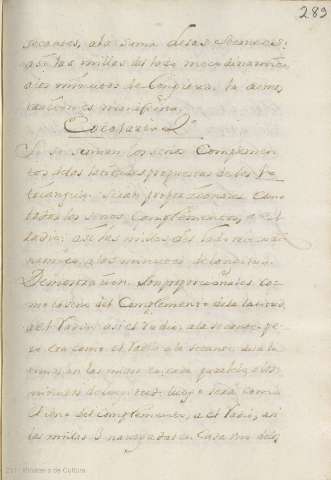 289
secantes, a la suma de las secantes:
assi las millas del lado mecodinamico,
a los minutos de longitud. la demos
tracion es manifiesta.
Corolario 2º
Si se suman los senos complemen
tos de las latitudes propuestas de los
triangulos: seran proporcionales como
todos los senos complementos, a el
Radio: assi las millas del lado mecodi
namico, a los minutos de longitud.
Demostracion. Son proporcionales co
mo el seno del complemento de la latitud,
a el Radio; assi el radio, a la secante; pe
ro son como el radio a la secante de la la
titud, assi las millas en cada paralelo a los
minutos de longitud: luego sera como
el seno del complemento, a el Radio, assi
las millas navegadas en cada uno de los
Ministerio de Cultura